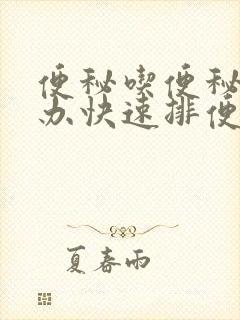 便秘喫便秘
办快速排便
夏春雨